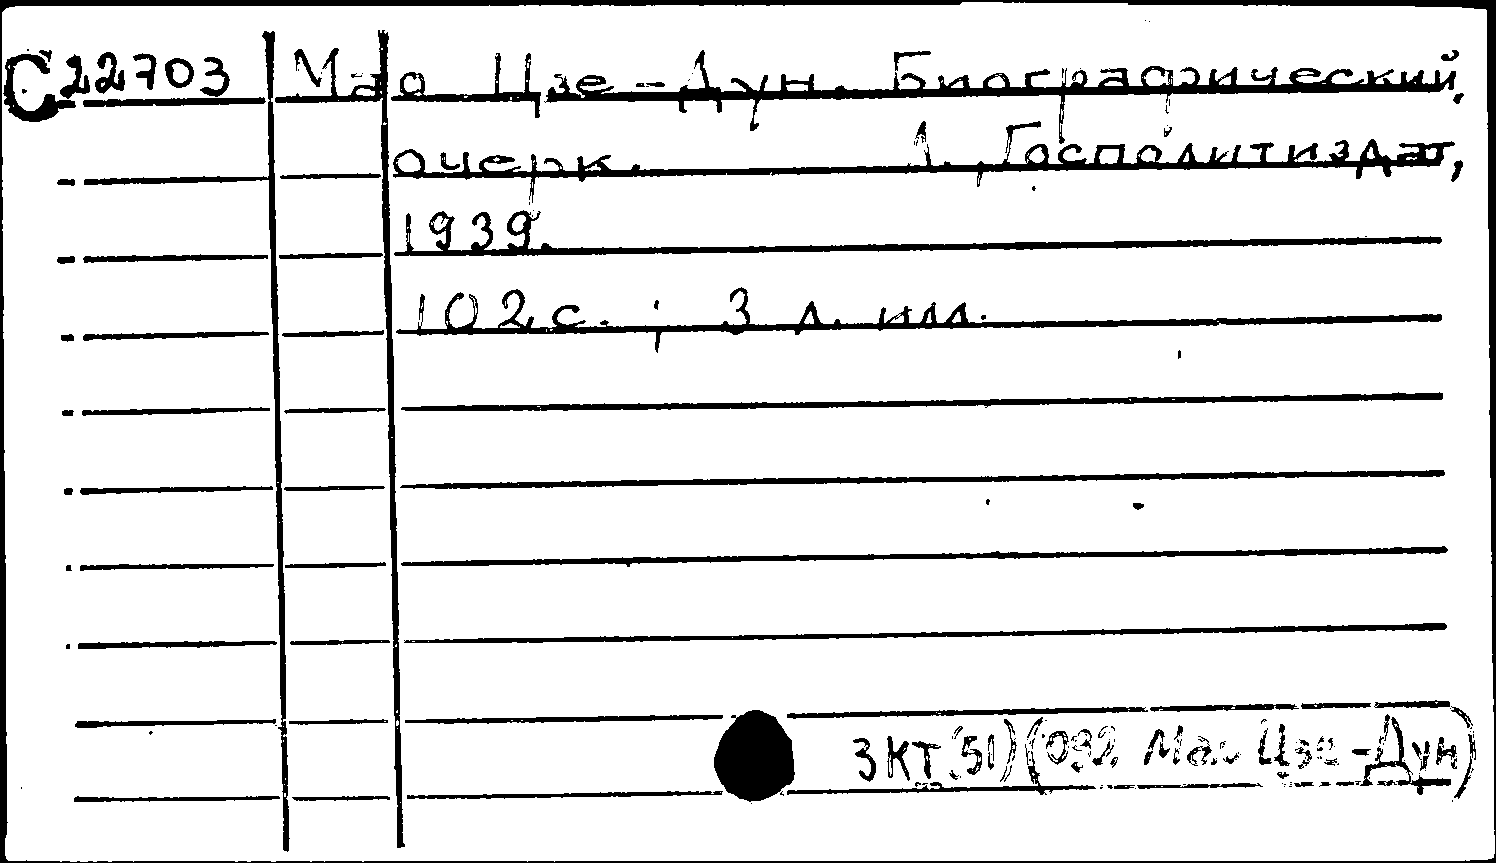 С22703 Мао Цзе-Дун. Биографический
очерк. Л., Госполитиздат,
1939.
102 с. ; 3 л. илл.
3КТ(51)(092 Мао Цзе-Дун)